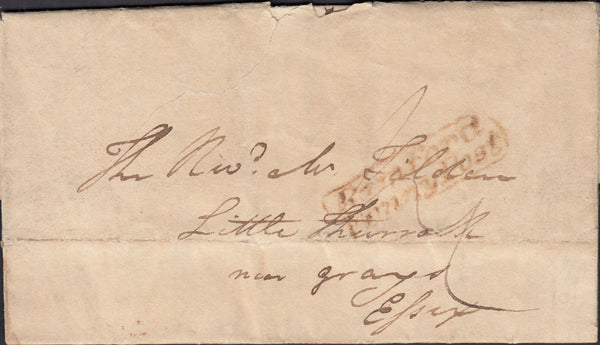 The Revd. Mr Falden
Little Thurrock
near grays
Essex
Penny Post